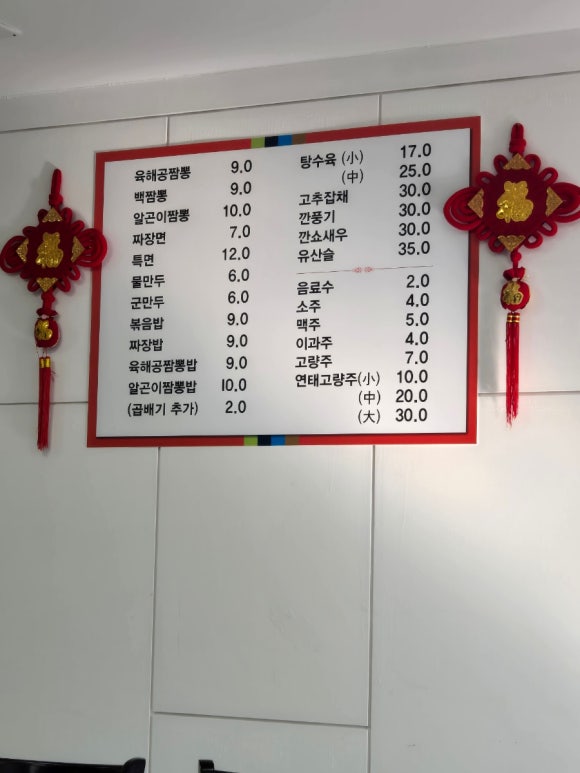 육해공짬뽕 9.0
백짬뽕 9.0
알곤이짬뽕 10.0
짜장면 7.0
특면 12.0
물만두 6.0
군만두 6.0
볶음밥 9.0
짜장밥 9.0
육해공짬뽕밥 9.0
알곤이짬뽕밥 10.0
(곱배기 추가) 2.0
탕수육 (小) 17.0
(中) 25.0
고추잡채 30.0
깐풍기 30.0
깐쇼새우 30.0
유산슬 35.0
음료수 2.0
소주 4.0
맥주 5.0
이과주 4.0
고량주 7.0
연태고량주(小) 10.0
(中) 20.0
(大) 30.0
福
福